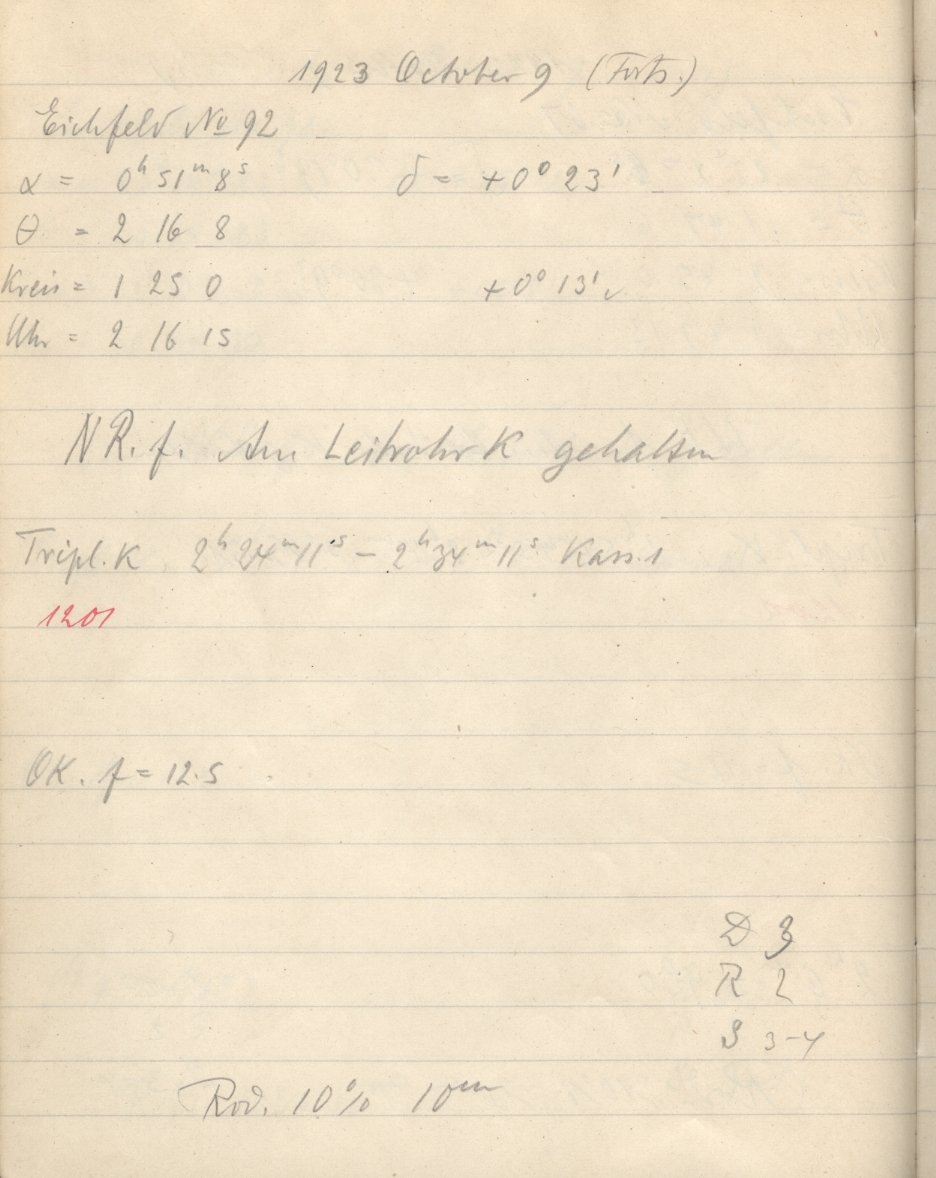 1923 October 9 (Forts.)
Eichfeld No 92
α = 0ʰ 51ᵐ 8ˢ δ = +0° 23'
θ = 2 16 8
Kreis = 1 25 0 +0° 13' ✓
Uhr = 2 16 15
NR. f. Am Leitrohr K gehalten
Tripl. K 2ʰ 24ᵐ 11ˢ – 2ʰ 34ᵐ 11ˢ Kass. 1
1201
OK. f = 12.5
D 3
R 2
S 3-4
Rod. 10% 10ᵐ